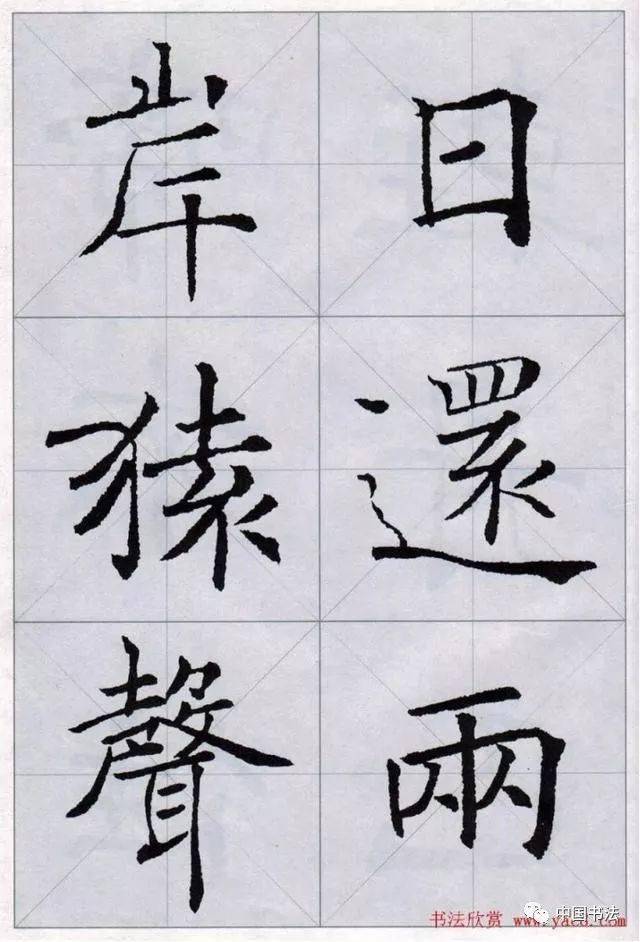 日還兩
岸猿聲
书法欣赏 www.yac8.com
中国书法